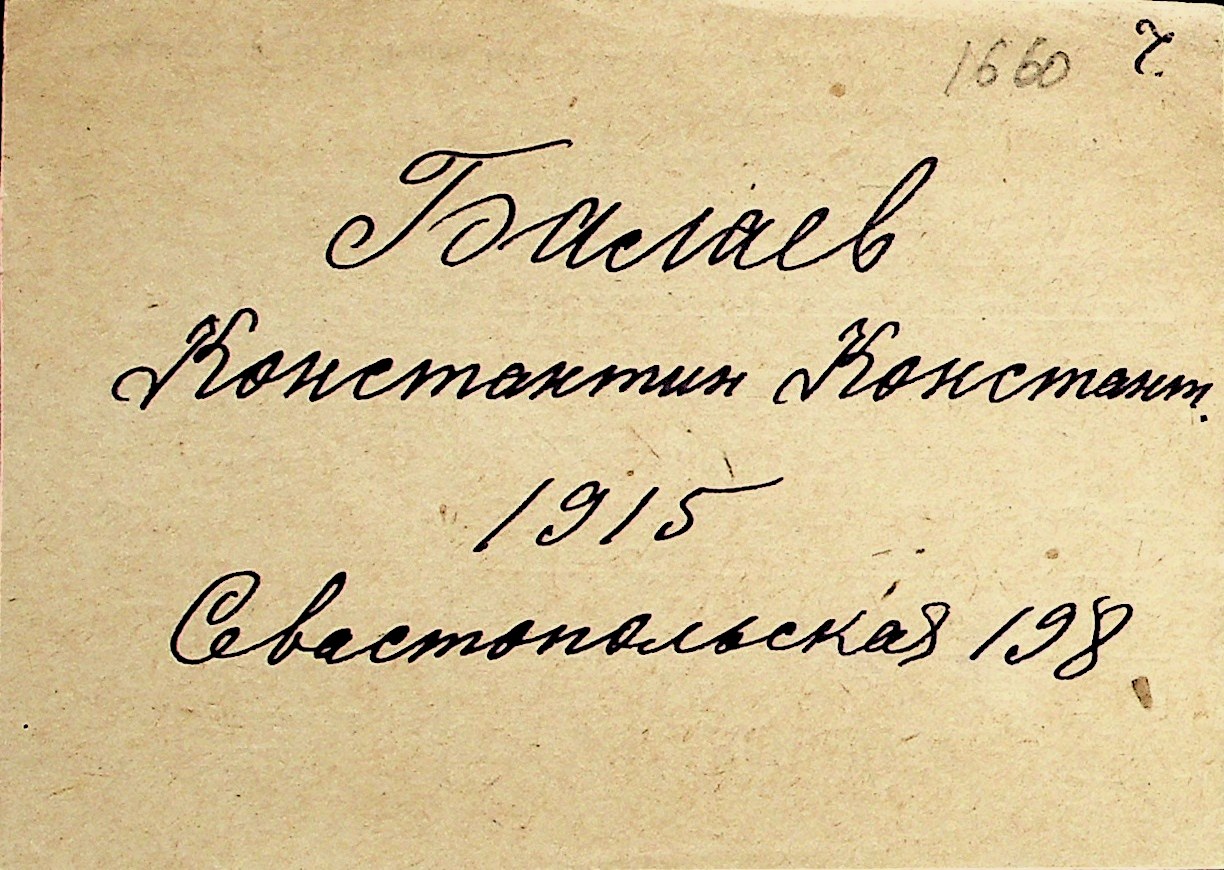 1660 7.
Балаев
Константин Констант.
1915
Севастопольская 198